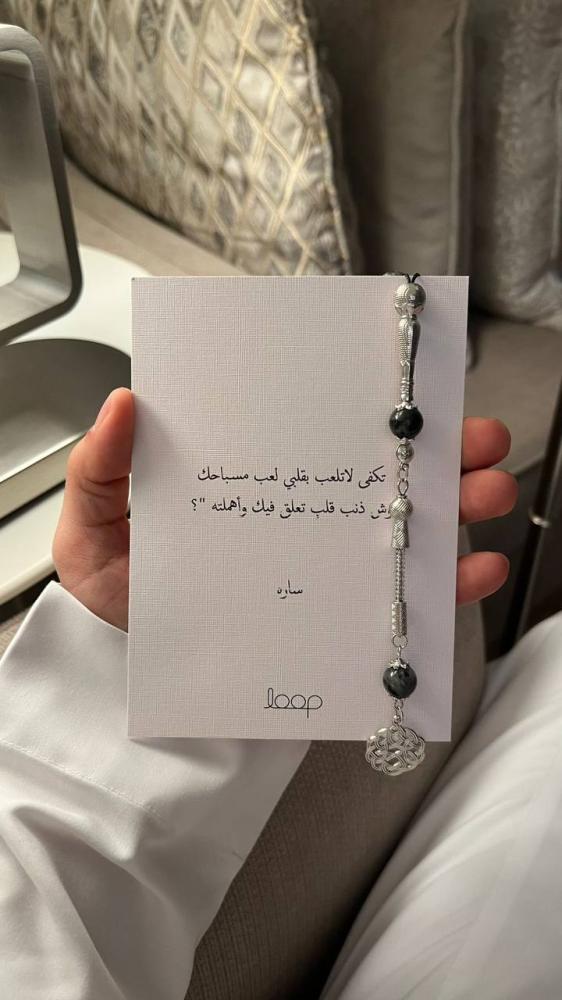 تكفى لاتلعب بقلبي لعب مسباحك
وش ذنب قلب تعلق فيك وأهملته "؟
ساره
loop